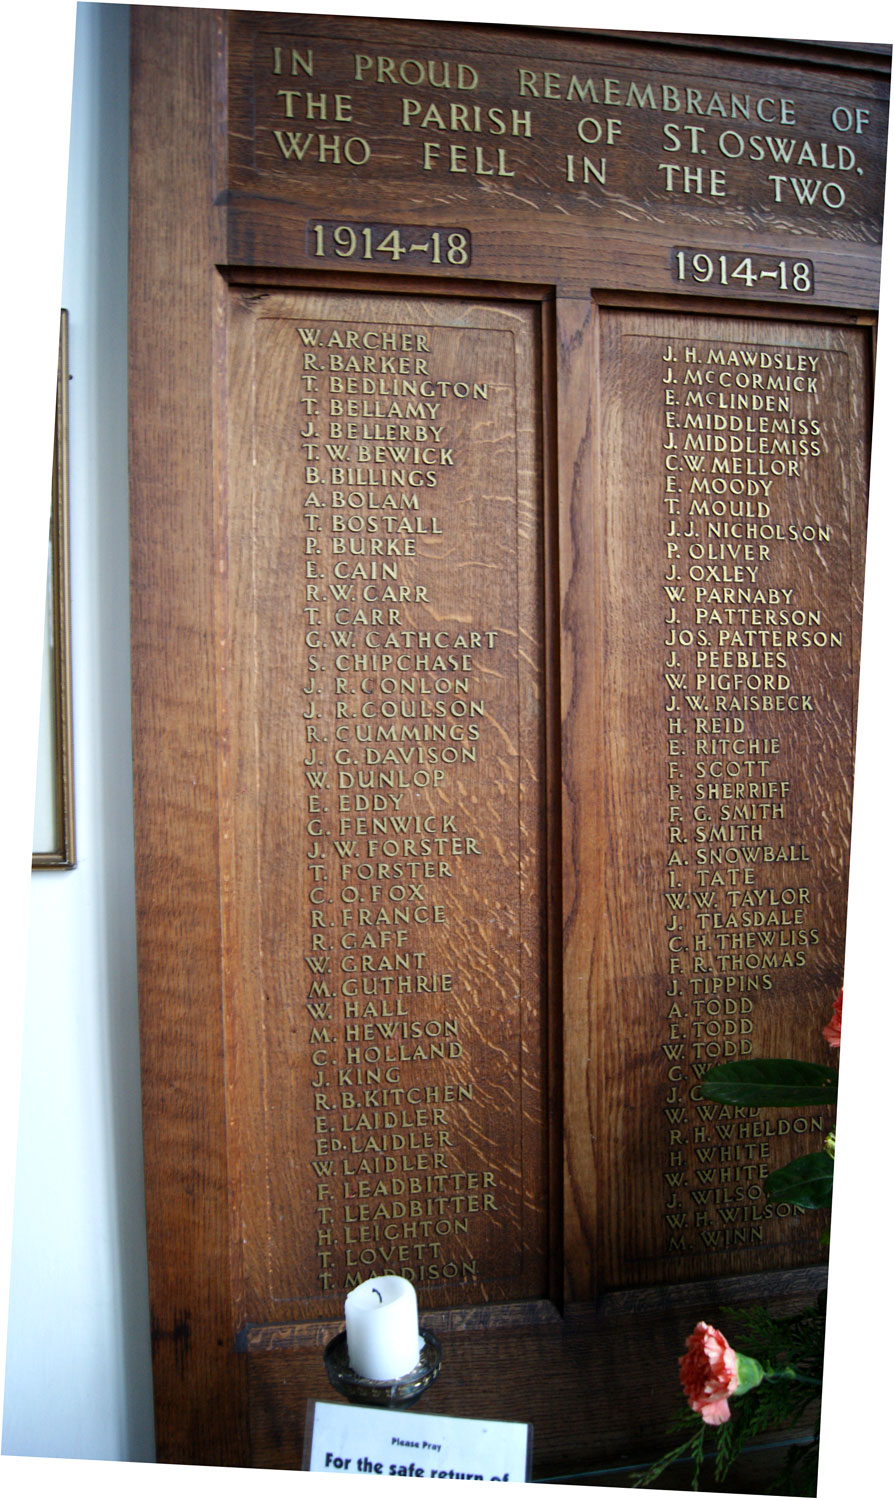 IN PROUD REMEMBRANCE OF
THE PARISH OF ST. OSWALD,
WHO FELL IN THE TWO
1914-18
W. ARCHER
R. BARKER
T. BEDLINGTON
T. BELLAMY
J. BELLERBY
T. W. BEWICK
B. BILLINGS
A. BOLAM
T. BOSTALL
P. BURKE
E. CAIN
R. W. CARR
T. CARR
G. W. CATHCART
S. CHIPCHASE
J. R. CONLON
J. R. COULSON
R. CUMMINGS
J. G. DAVISON
W. DUNLOP
E. EDDY
G. FENWICK
J. W. FORSTER
T. FORSTER
C. O. FOX
R. FRANCE
R. GAFF
W. GRANT
M. GUTHRIE
W. HALL
M. HEWISON
C. HOLLAND
J. KING
R. B. KITCHEN
E. LAIDLER
ED. LAIDLER
W. LAIDLER
F. LEADBITTER
T. LEADBITTER
H. LEIGHTON
T. LOVETT
T. MADDISON
1914-18
J. H. MAWDSLEY
J. McCORMICK
E. McLINDEN
E. MIDDLEMISS
J. MIDDLEMISS
C. W. MELLOR
E. MOODY
T. MOULD
J. J. NICHOLSON
P. OLIVER
J. OXLEY
W. PARNABY
J. PATTERSON
JOS. PATTERSON
J. PEEBLES
W. PIGFORD
J. W. RAISBECK
H. REID
E. RITCHIE
F. SCOTT
F. SHERRIFF
F. G. SMITH
R. SMITH
A. SNOWBALL
I. TATE
W. W. TAYLOR
J. TEASDALE
C. H. THEWLISS
F. R. THOMAS
J. TIPPINS
A. TODD
E. TODD
W. TODD
G.
J.
W. WARD
R. H. WHELDON
H. WHITE
W. WHITE
J. WILSO
W. H. WILSON
M. WINN
Please Pray
For the safe return of